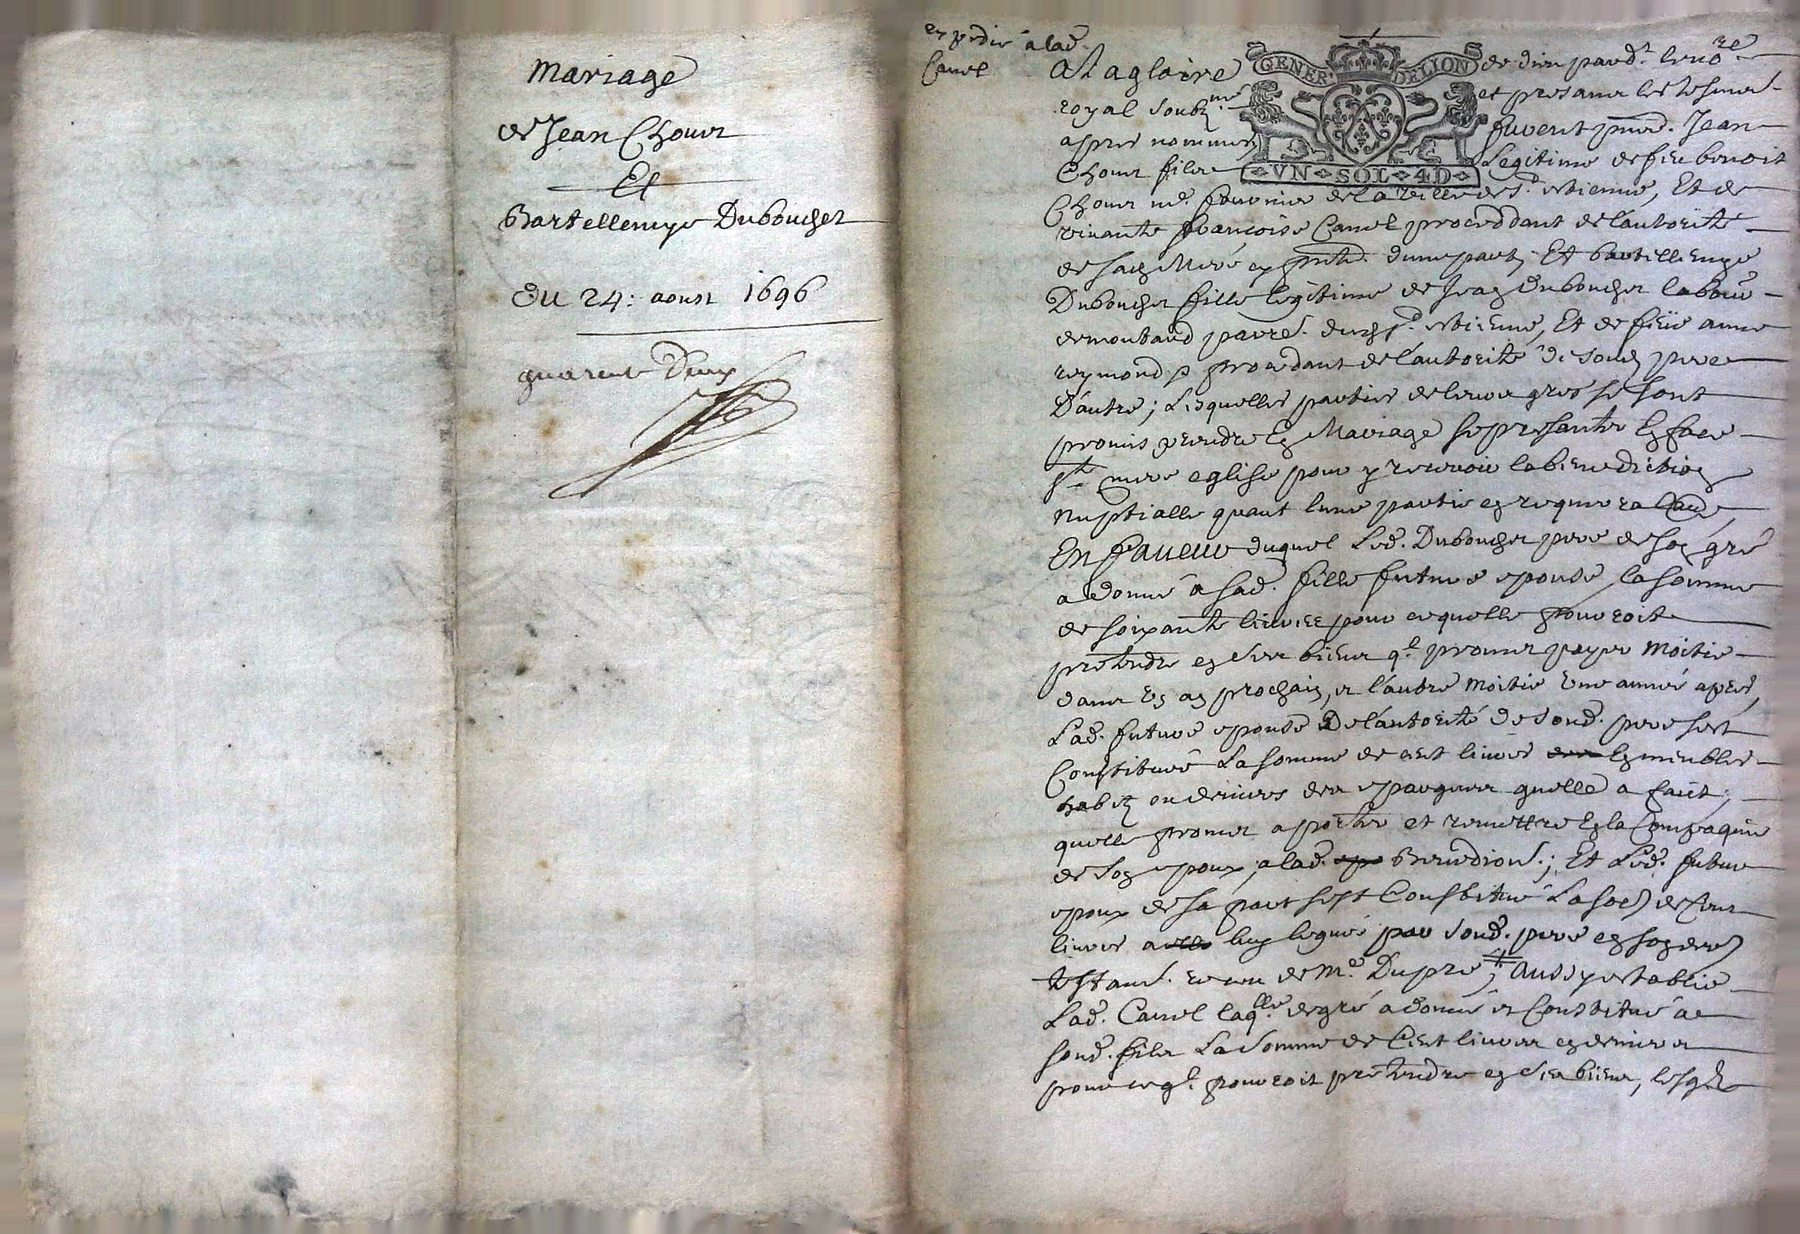 Mariage
de Jean Chouer
Et
Bartellemye Duboucher
du 24: aoust 1696
quarente Deux
expedié a lad.
Carrel
A La gloire de dieu pard.t le no.re
royal soubz.né et presance les tesmoins
apres nommes furent pnts. Jean
Chouer filz Legitime de feu benoit
GENER. DE LION
VN SOL 4D
Chouer m.e de la Ville de S.t estienne, Et de
vivante francoise Carrel proceddant de l'autorité
de sa mere dune part; Et bartellemye
Duboucher fille legitime de Jean Duboucher labour
de montaud parre. dud S.t estienne, Et de feüe anne
reymond procedant de l'autorité de sond pere
D'autre; Lesquelles parties de leurs gres se sont
promis prendre en Mariage se presanter en face
S.te mere eglise pour y recevoir la benediction
Nuptialle quant lune partie en requerra lautre
En faveur duquel Led. Duboucher pere de son gré
a donné a sad. fille future epouse, la somme
de soixante livres pour ce quelle pouroit
prétendre en ses biens q.l promet payer Moitié
dans un an prochain, et l'autre Moitié une année apres,
Lad. future epouse De l'autorité de sond. pere sest
Constituée La somme de cent livres en meubles
habitz ou deniers des epargnes quelle a faict;
quelle promet aporter et remettre en la Compagnie
de son epoux, a lad. Benediction.; Et Led. futur
epoux de sa part sest Constitué La somme de cent
livres a luy legués par sond. pere en son dernier
testam.t receu de M.e Dupré; Aussy establie
Lad. Carrel laq.lle de gré a donné et Constitué a
sond. filz La somme de Cent livres en deniers
pour ce q.l pouroit prétendre en ses biens, lesq.lz